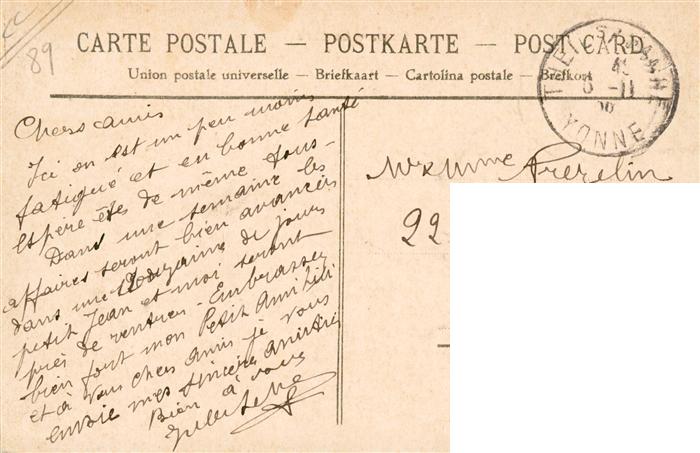 89
CARTE POSTALE — POSTKARTE — POST CARD
Union postale universelle — Briefkaart — Cartolina postale — Brefkort
YONNE
Chers amis
Ici on est un peu moins
fatigué et en bonne santé
espère êtes de même tous-
Dans une semaine les
affaires seront bien avancées
dans une douzaine de jours
petit Jean et moi seront
près de rentrer - Embrasser
bien fort mon Petit Ami Lili
et à vous chers Amis je vous
envoie mes sincères amitiés
Bien à vous
Mr & Mme
22